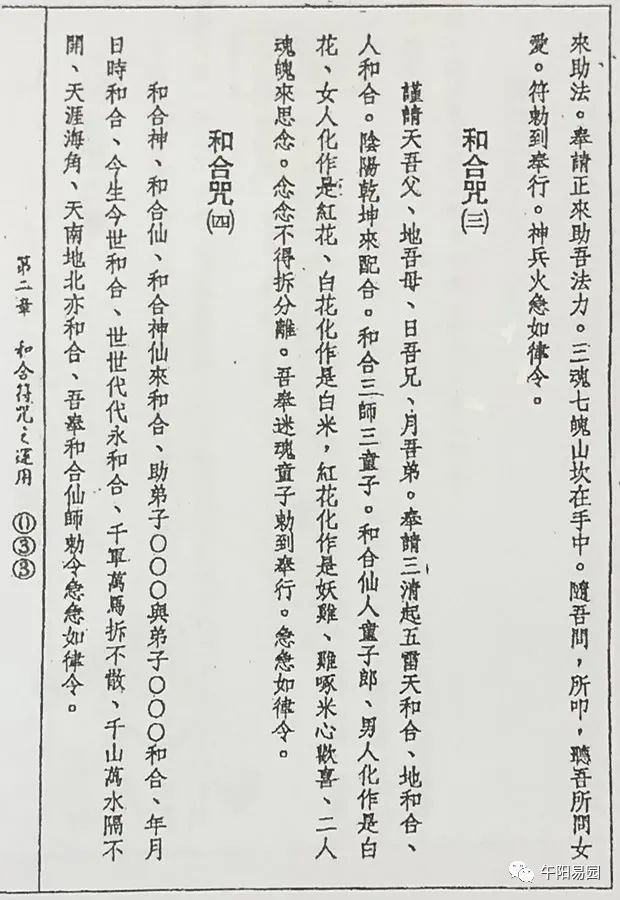 來助法。奉請正來助吾法力。三魂七魄山坎在手中。隨吾問，所叩，聽吾所問女
愛。符勅到奉行。神兵火急如律令。
和合咒㈢
謹請天吾父、地吾母、日吾兄、月吾弟。奉請三清起五雷天和合、地和合、
人和合。陰陽乾坤來配合。和合三師三童子。和合仙人童子郎、男人化作是白
花、女人化作是紅花、白花化作是白米，紅花化作是妖雞、雞啄米心歡喜、二人
魂魄來思念。念念不得拆分離。吾奉迷魂童子勅到奉行。急急如律令。
和合咒㈣
和合神、和合仙、和合神仙來和合、助弟子○○○與弟子○○○和合、年月
日時和合、今生今世和合、世世代代永和合、千軍萬馬拆不散、千山萬水隔不
開、天涯海角、天南地北亦和合、吾奉和合仙師勅令急急如律令。
第二章 和合符咒之運用 ①③③
午阳易园